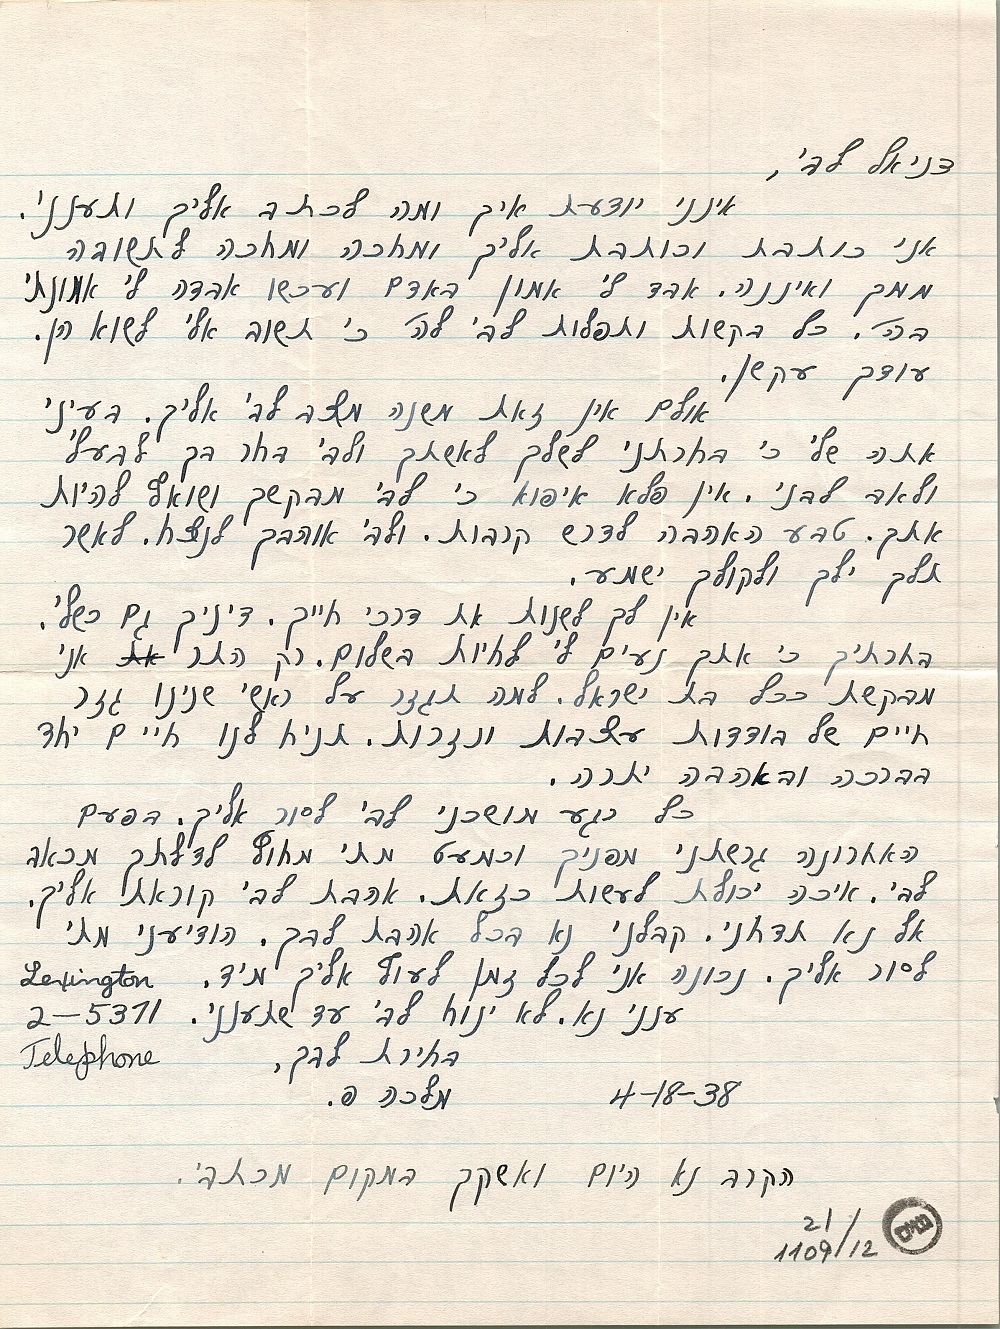 דניאל לבי,
אינני יודעת איך ומה לכתב אליך ותענני.
אני כותבת וכותבת אליך ומחכה ומחכה לתשובה
ממך ואיננה. אבד לי אמון באדם ועכשו אבדה לי אמונתי
בה׳. כל בקשות ותפלות לבי לה׳ כי תשוב אלי לשוא הן.
עודך עקשן.
אולם אין זאת משנה מצב לבי אליך. בעיני
אתה שלי כי בחרתני לשלך לאשתך ולבי בחר בך לבעלי
ולאב לבני. אין פלא איפוא כי לבי מבקשך ושואף להיות
אתך. טבע האהבה לדרש קרבות. ולבי אוהבך לנצח. לאשר
תלך ילך ולקולך ישמע.
אין לך לשנות את דרכי חייך. דיניך גם כשלי.
בחרתיך כי אתך נעים לי לחיות בשלום. רק התר את אני
מבקשת ככל בת ישראל. למה תגזר על ראשי שנינו גזר
חיים של בודדות עצבות ונזרות. תניח לנו חיים יחד
בברכה ובאהבה יתרה.
כל רגע מושכני לבי לסור אליך. בפעם
האחרונה גרשתני מפניך וכמעט מתי מחוץ לדלתך מכאב
לבי. איכה יכולת לעשות כזאת. אהבת לבי קוראת אליך.
אל נא תדחני. קבלני נא בכל אהבת לבך. הודיעני מתי
לסור אליך. נכונה אני לכל זמן לעוף אליך מיד. Lexington
ענני נא. לא ינוח לבי עד שתענני. 2-5371
בחירת לבך, Telephone
מלכה פ. 4-18-38
הקרב נא היום ואשקך במקום מכתבי.
21/
1109/12